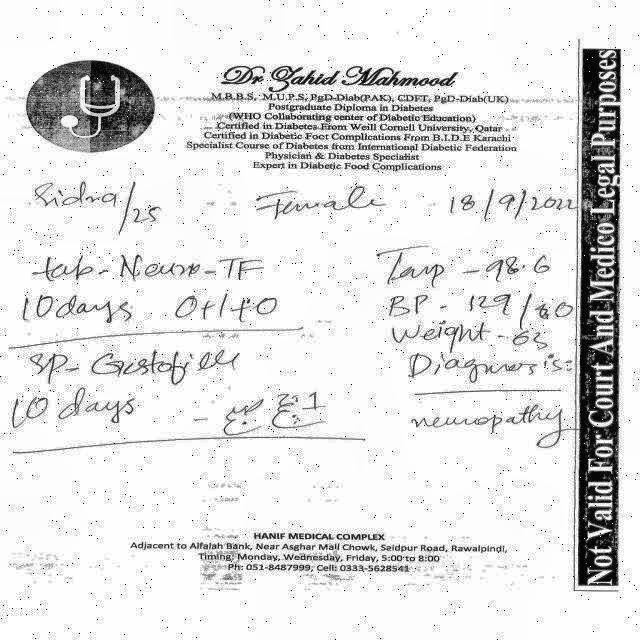 Dr Zahid Mahmood
M.B.B.S, M.U.P.S, PgD-Diab(PAK), CDFT, PgD-Diab(UK)
Postgraduate Diploma in Diabetes
(WHO Collaborating center of Diabetic Education)
Certified in Diabetes From Weill Cornell University, Qatar
Certified in Diabetic Foct Complications From B.I.D.E Karachi
Specialist Course of Diabetes from International Diabetic Federation
Physician & Diabetes Specialist
Expert in Diabetic Food Complications
Sidra/25 Female 18/9/2022
tab-Neuro-TF
10 days 0+1+0
SP-Gustofill
10 days - 1
Temp - 98.6
BP - 129/80
Weight - 63
Diagnosis:
neuropathy
HANIF MEDICAL COMPLEX
Adjacent to Alfalah Bank, Near Asghar Mall Chowk, Seidpur Road, Rawalpindi,
Timing: Monday, Wednesday, Friday, 5:00 to 8:00
Ph: 051-8487999, Cell: 0333-5628541
Not Valid For Court And Medico Legal Purposes